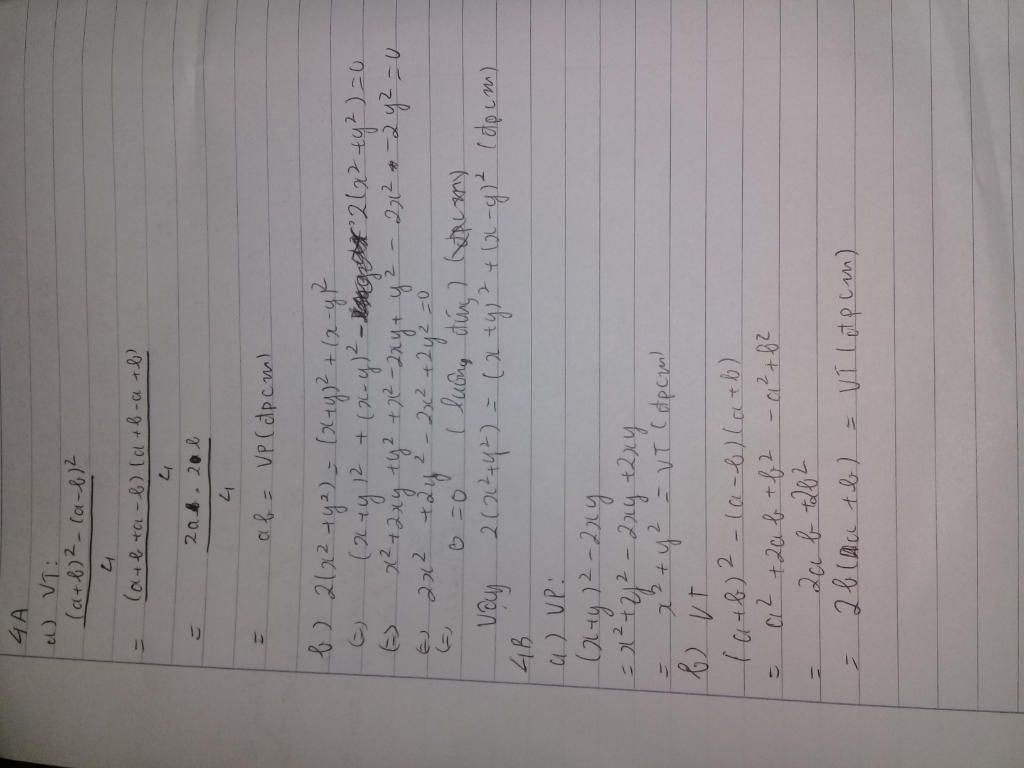 4A
a) VT:
(a+b)² - (a-b)²
4
= (a+b+a-b)(a+b-a+b)
4
= 2a.2b
4
= ab = VP (đpcm)
b) 2(x²+y²) = (x+y)² + (x-y)²
(=) (x+y)² + (x-y)² - 2(x²+y²) = 0
(=) x²+2xy+y²+x²-2xy+y² - 2x² - 2y² = 0
(=) 2x² + 2y² - 2x² + 2y² = 0
(=) 0 = 0 (luôn đúng) (đpcm)
Vậy 2(x²+y²) = (x+y)² + (x-y)² (đpcm)
4B
a) VP:
(x+y)² - 2xy
= x²+y² - 2xy + 2xy
= x² + y² = VT (đpcm
b) VT
(a+b)² - (a-b)(a+b)
= a² + 2ab + b² - a² + b²
= 2ab + 2b²
= 2b(a+b) = VT (đpcm)